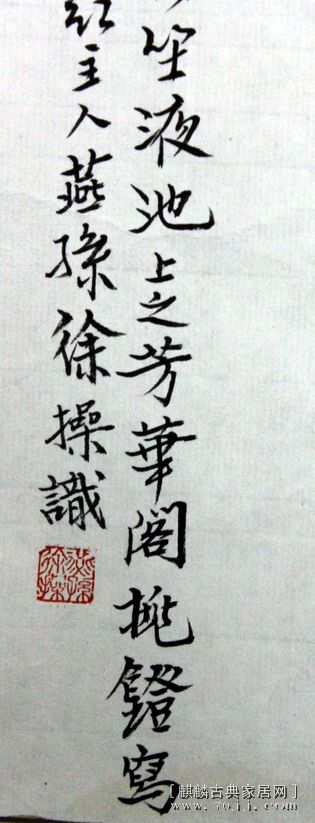 坐液池上之芳華閣挑鐙寫
主人燕孫徐操識
燕孫
徐操
[麒麟古典家居网]
www.70jj.com